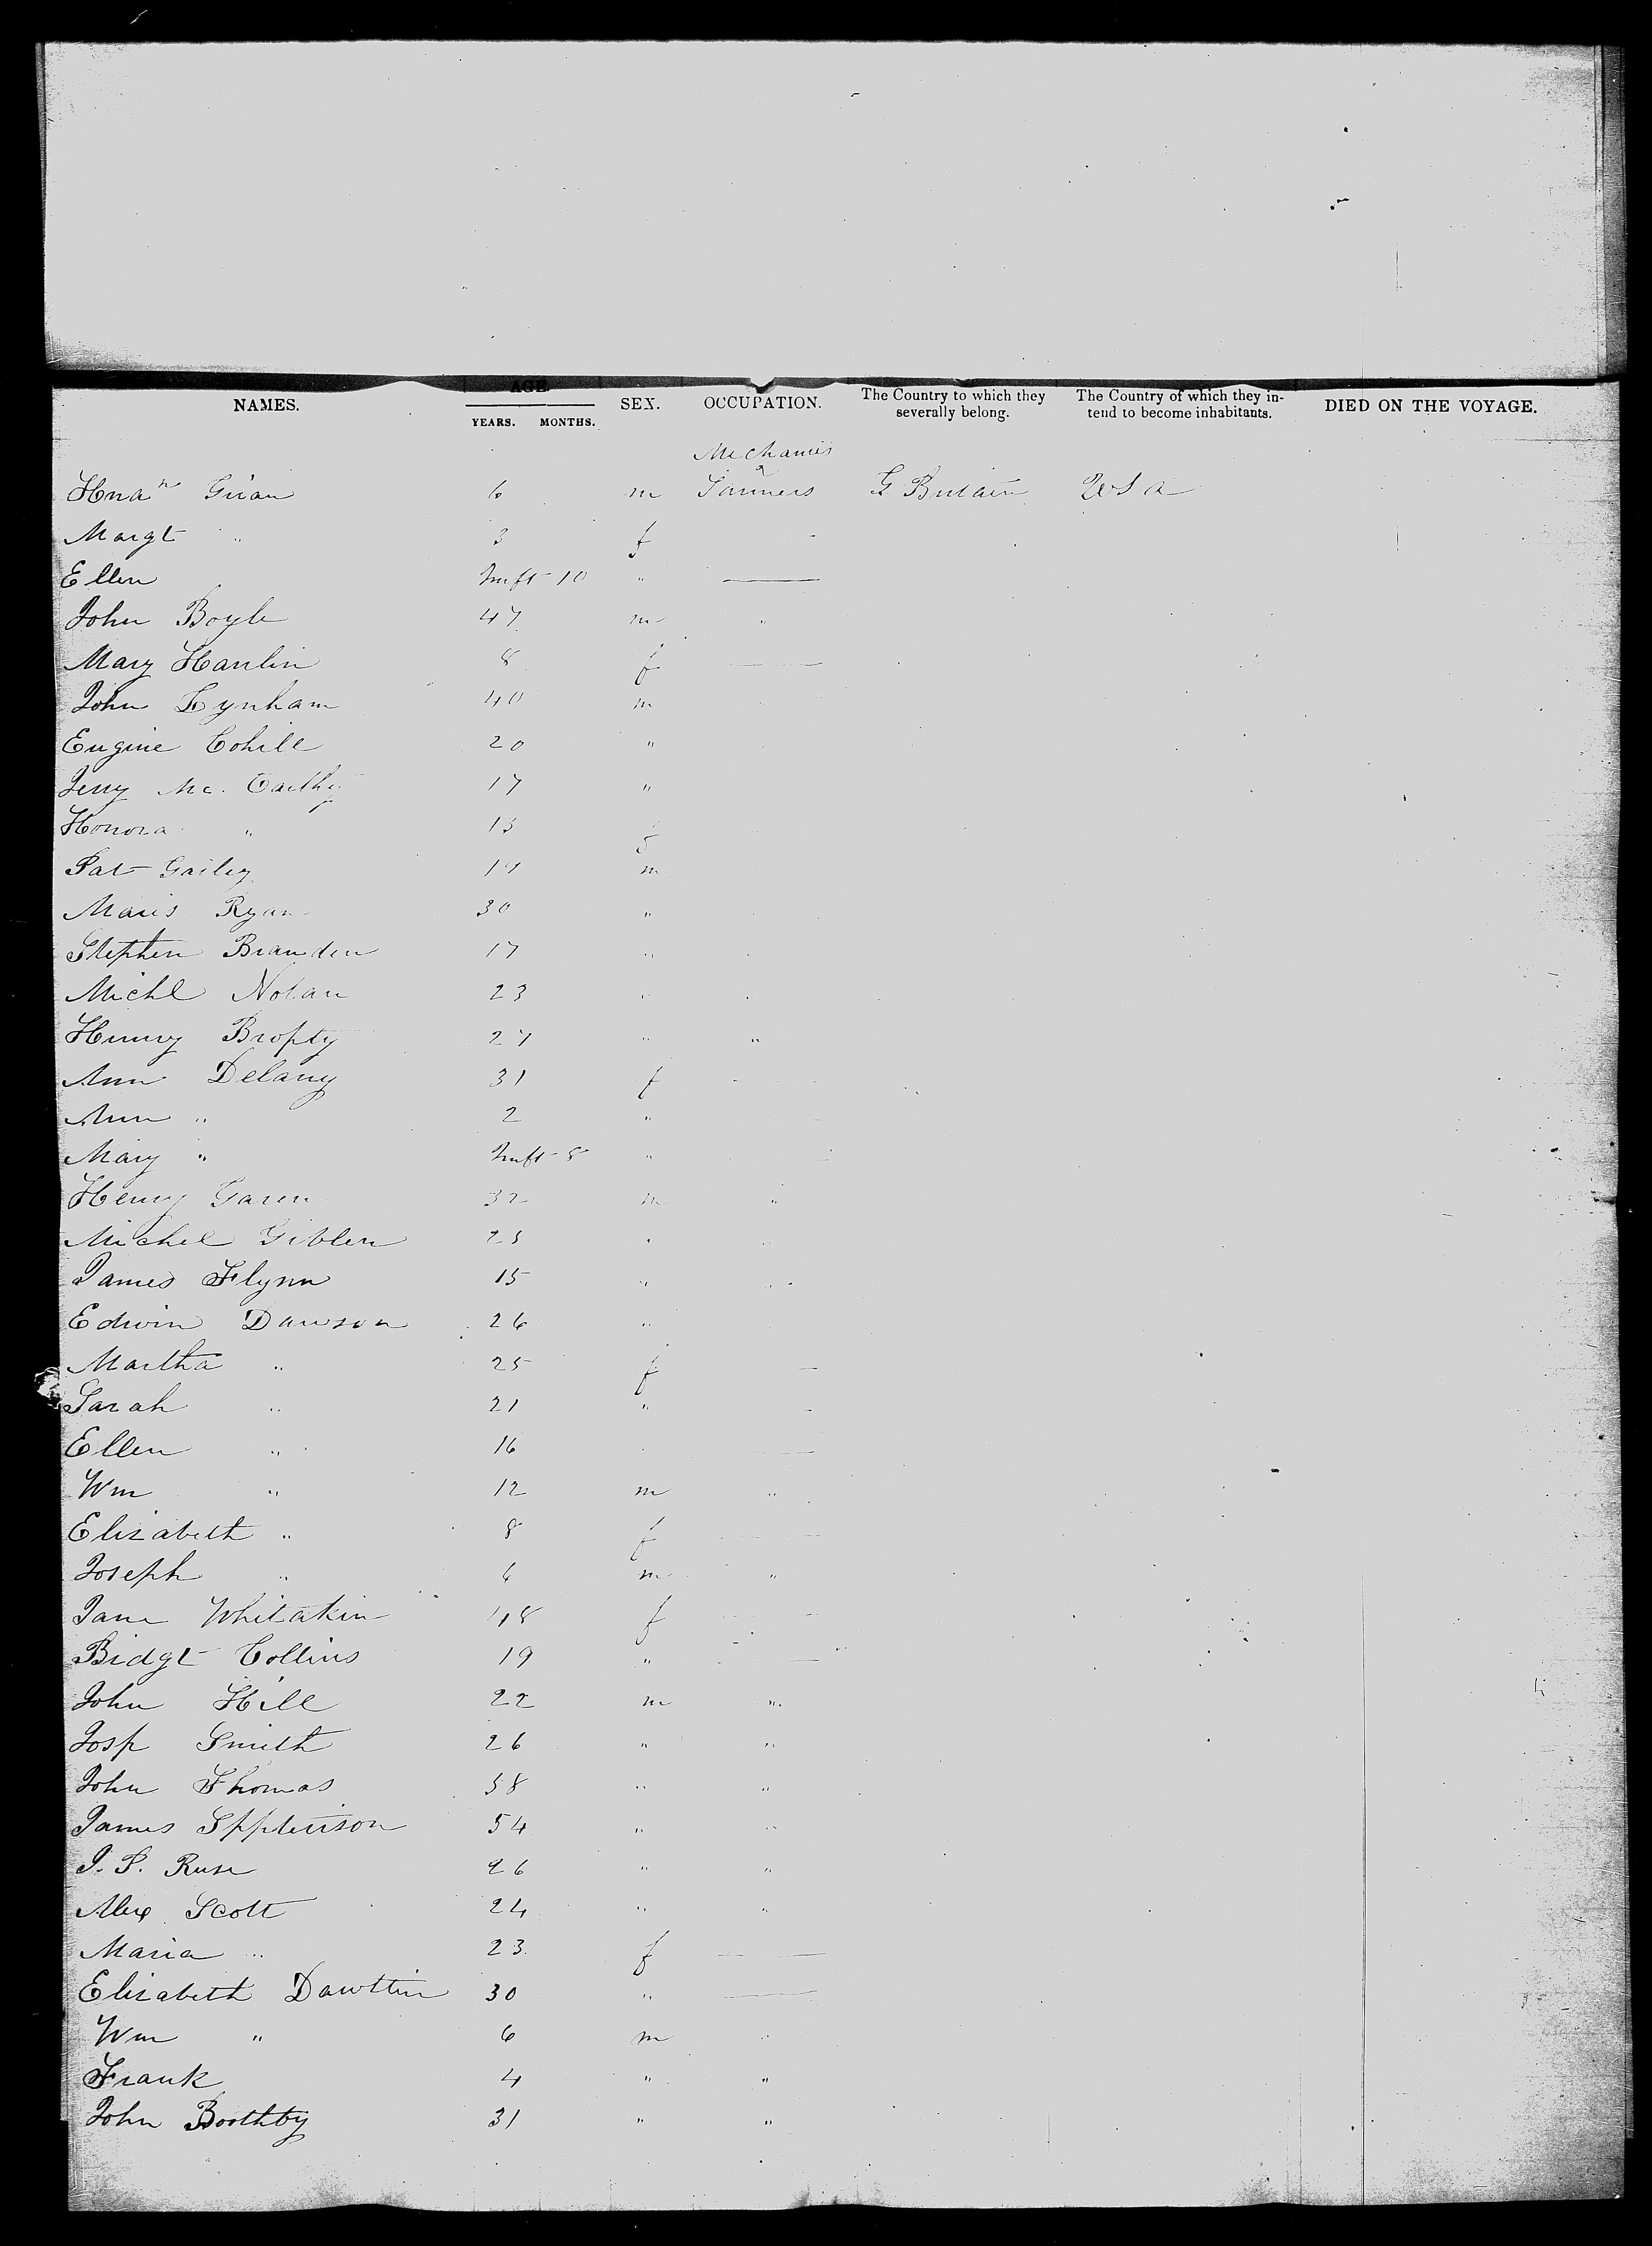 AGE.
NAMES. YEARS. MONTHS. SEX. OCCUPATION. The Country to which they severally belong. The Country of which they intend to become inhabitants. DIED ON THE VOYAGE.
Mechanics
& 
6 m Farmers G Britain USA
Margt " 3 f
Ellen Inft 10 "
John Boyle 47 m "
Mary Hanlin 8 f
John Lynham 40 m
Eugine Cohill 20 "
Jerry Mc. Carthy 17 "
Honora " 13 f
Pat Gailey 19 m
Maris Ryan 30 "
Stephen Branden 17 "
Michl Nolan 23 "
Henry Brophy 27 " "
Ann Delany 31 f
Ann " 2 "
Mary " Inft 8 "
Henry Garen 32 m "
Michel Giblen 23 "
James Flynn 15 "
Edwin Dawson 26 "
Martha " 25 f
Sarah " 21 "
Ellen " 16
Wm " 12 m "
Elizabeth " 8 f
Joseph " 6 m "
Jane Whitakin 48 f
Bidgt Collins 19 "
John Hill 22 m "
Josp Smith 26 " "
John Thomas 58 " "
James 54 " "
J. S. Ruse 26 " "
Alex Scott 24 " "
Maria " 23 f
Elizabeth Dawttin 30 "
Wm " 6 m "
Frank 4 " "
John Boothby 31 " "